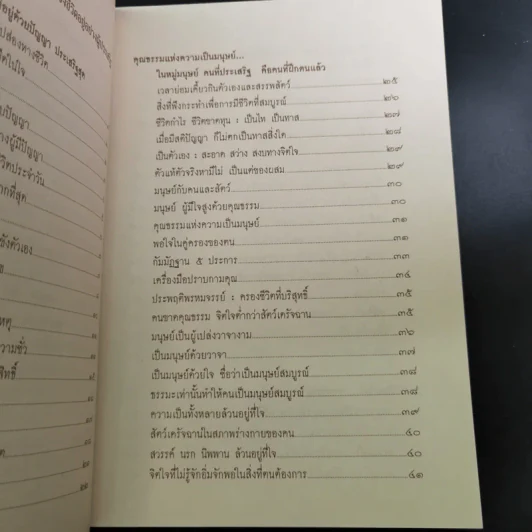 อยู่ด้วยปัญญา ประเสริฐสุด
ปล่องทางชีวิต
ปัญญา
างผู้มีปัญญา
ชีวิตประจำวัน
ากที่สุด
ขังตัวเอง
หตุ
ความชั่ว
สิทธิ์
คุณธรรมแห่งความเป็นมนุษย์...
ในหมู่มนุษย์ คนที่ประเสริฐ คือคนที่ฝึกตนแล้ว
เวลาย่อมเคี้ยวกินตัวเองและสรรพสัตว์ ๒๕
สิ่งที่พึงกระทำเพื่อการมีชีวิตที่สมบูรณ์ ๒๖
ชีวิตกำไร ชีวิตขาดทุน : เป็นไท เป็นทาส ๒๗
เมื่อมีสติปัญญา ก็ไม่ตกเป็นทาสสิ่งใด ๒๘
เป็นตัวเอง : สะอาด สว่าง สงบทางจิตใจ ๒๙
ตัวแท้ตัวจริงหามีไม่ เป็นแต่ของผสม ๒๙
มนุษย์กับคนและสัตว์ ๓๐
มนุษย์ ผู้มีใจสูงด้วยคุณธรรม ๓๐
คุณธรรมแห่งความเป็นมนุษย์ ๓๑
พอใจในคู่ครองของตน ๓๑
กัมมัฏฐาน ๕ ประการ ๓๓
เครื่องมือปราบกามคุณ ๓๔
ประพฤติพรหมจรรย์ : ครองชีวิตที่บริสุทธิ์ ๓๕
คนขาดคุณธรรม จิตใจต่ำกว่าสัตว์เดรัจฉาน ๓๕
มนุษย์เป็นผู้เปล่งวาจางาม ๓๖
เป็นมนุษย์ด้วยวาจา ๓๗
เป็นมนุษย์ด้วยใจ ชื่อว่าเป็นมนุษย์สมบูรณ์ ๓๘
ธรรมะเท่านั้นทำให้คนเป็นมนุษย์สมบูรณ์ ๓๘
ความเป็นทั้งหลายล้วนอยู่ที่ใจ ๓๙
สัตว์เดรัจฉานในสภาพร่างกายของคน ๔๐
สวรรค์ นรก นิพพาน ล้วนอยู่ที่ใจ ๔๐
จิตใจที่ไม่รู้จักอิ่มจักพอในสิ่งที่ตนต้องการ ๔๑